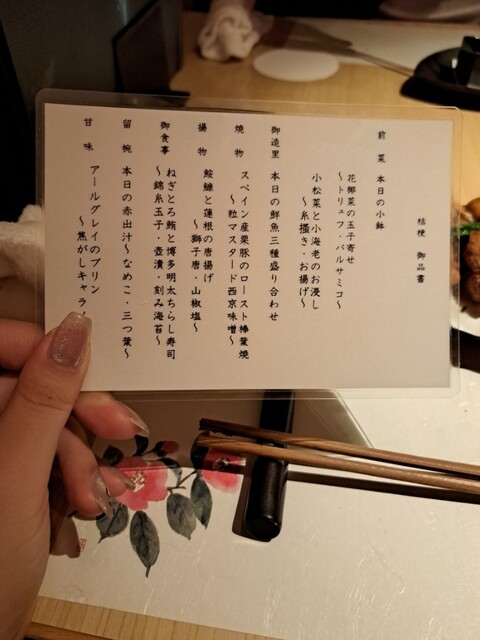 桔梗 御品書
前菜 本日の小鉢
花椰菜の玉子寄せ
～トリュフ・バルサミコ～
小松菜と小海老のお浸し
～糸掻き・お揚げ～
御造里 本日の鮮魚三種盛り合わせ
焼物 スペイン産栗豚のロースト朴葉焼
～粒マスタード西京味噌～
揚物 鮟鱇と蓮根の唐揚げ
～獅子唐・山椒塩～
御食事 ねぎとろ鮪と博多明太ちらし寿司
～錦糸玉子・壺漬・刻み海苔～
留椀 本日の赤出汁～なめこ・三つ葉～
甘味 アールグレイのプリン
～焦がしキャラ